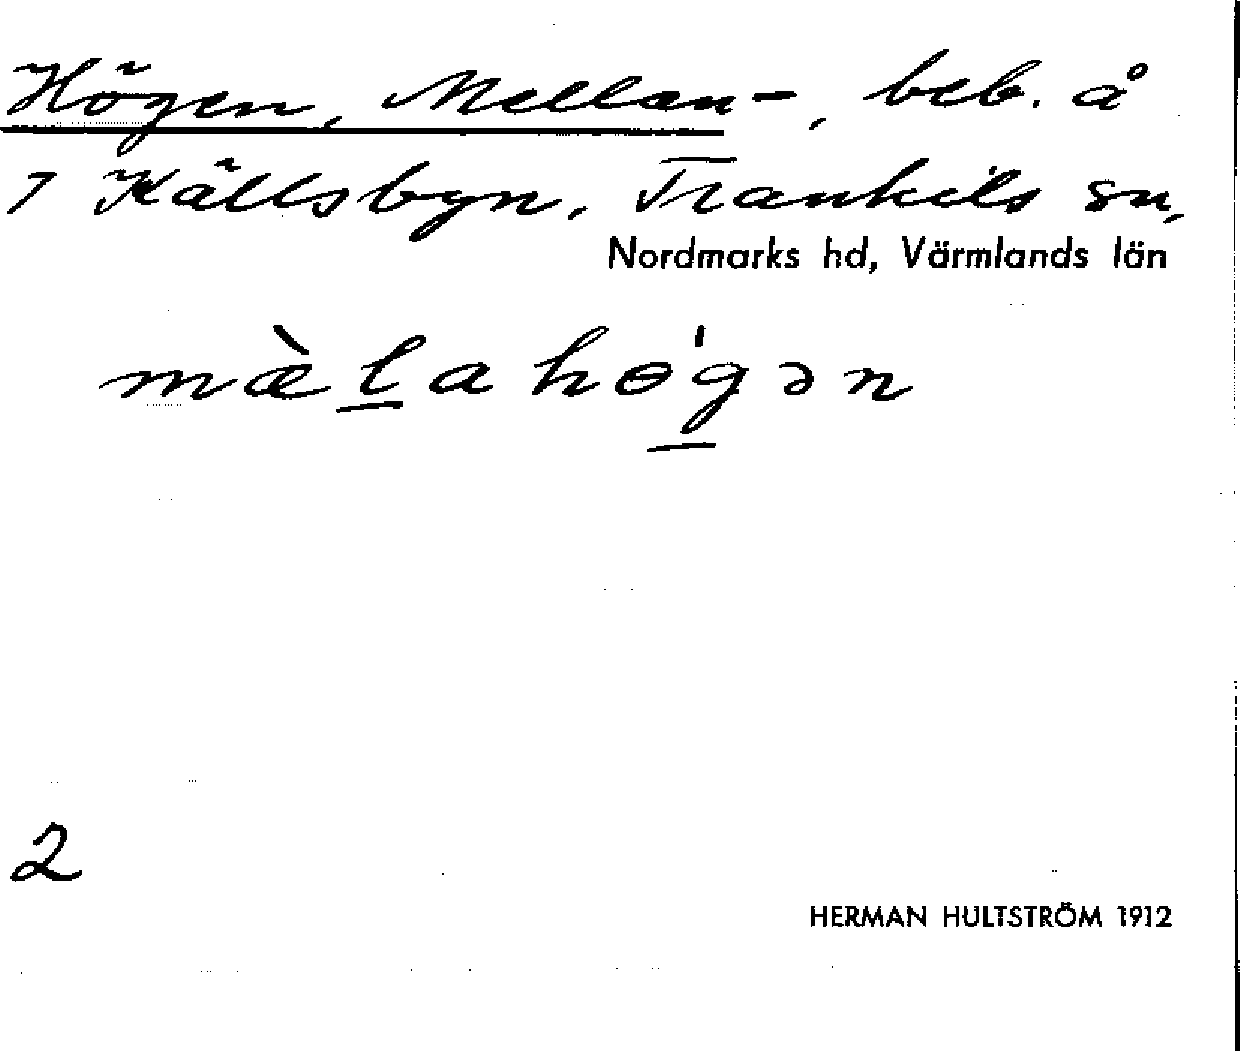 Högen, Mellan-, beb. å
7 Källsbyn, Trankils sn,
Nordmarks hd, Värmlands län
mæ̀l̲a hɵǵ̲ən
2
HERMAN HULTSTRÖM 1912